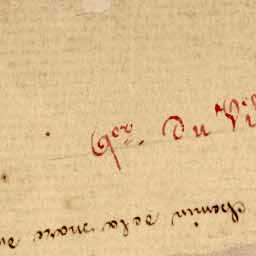 Qer. Du Vil
chemin de la mare au